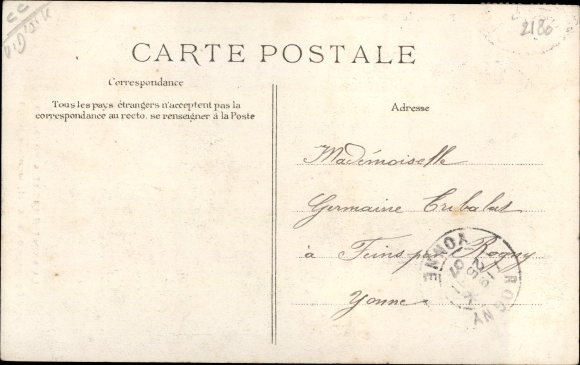 2180
CARTE POSTALE
Correspondance
Tous les pays étrangers n'acceptent pas la
correspondance au recto. se renseigner à la Poste
Adresse
Mademoiselle
Germaine Tribalat
à Feins par Rogny
Yonne
ROGNY
YONNE